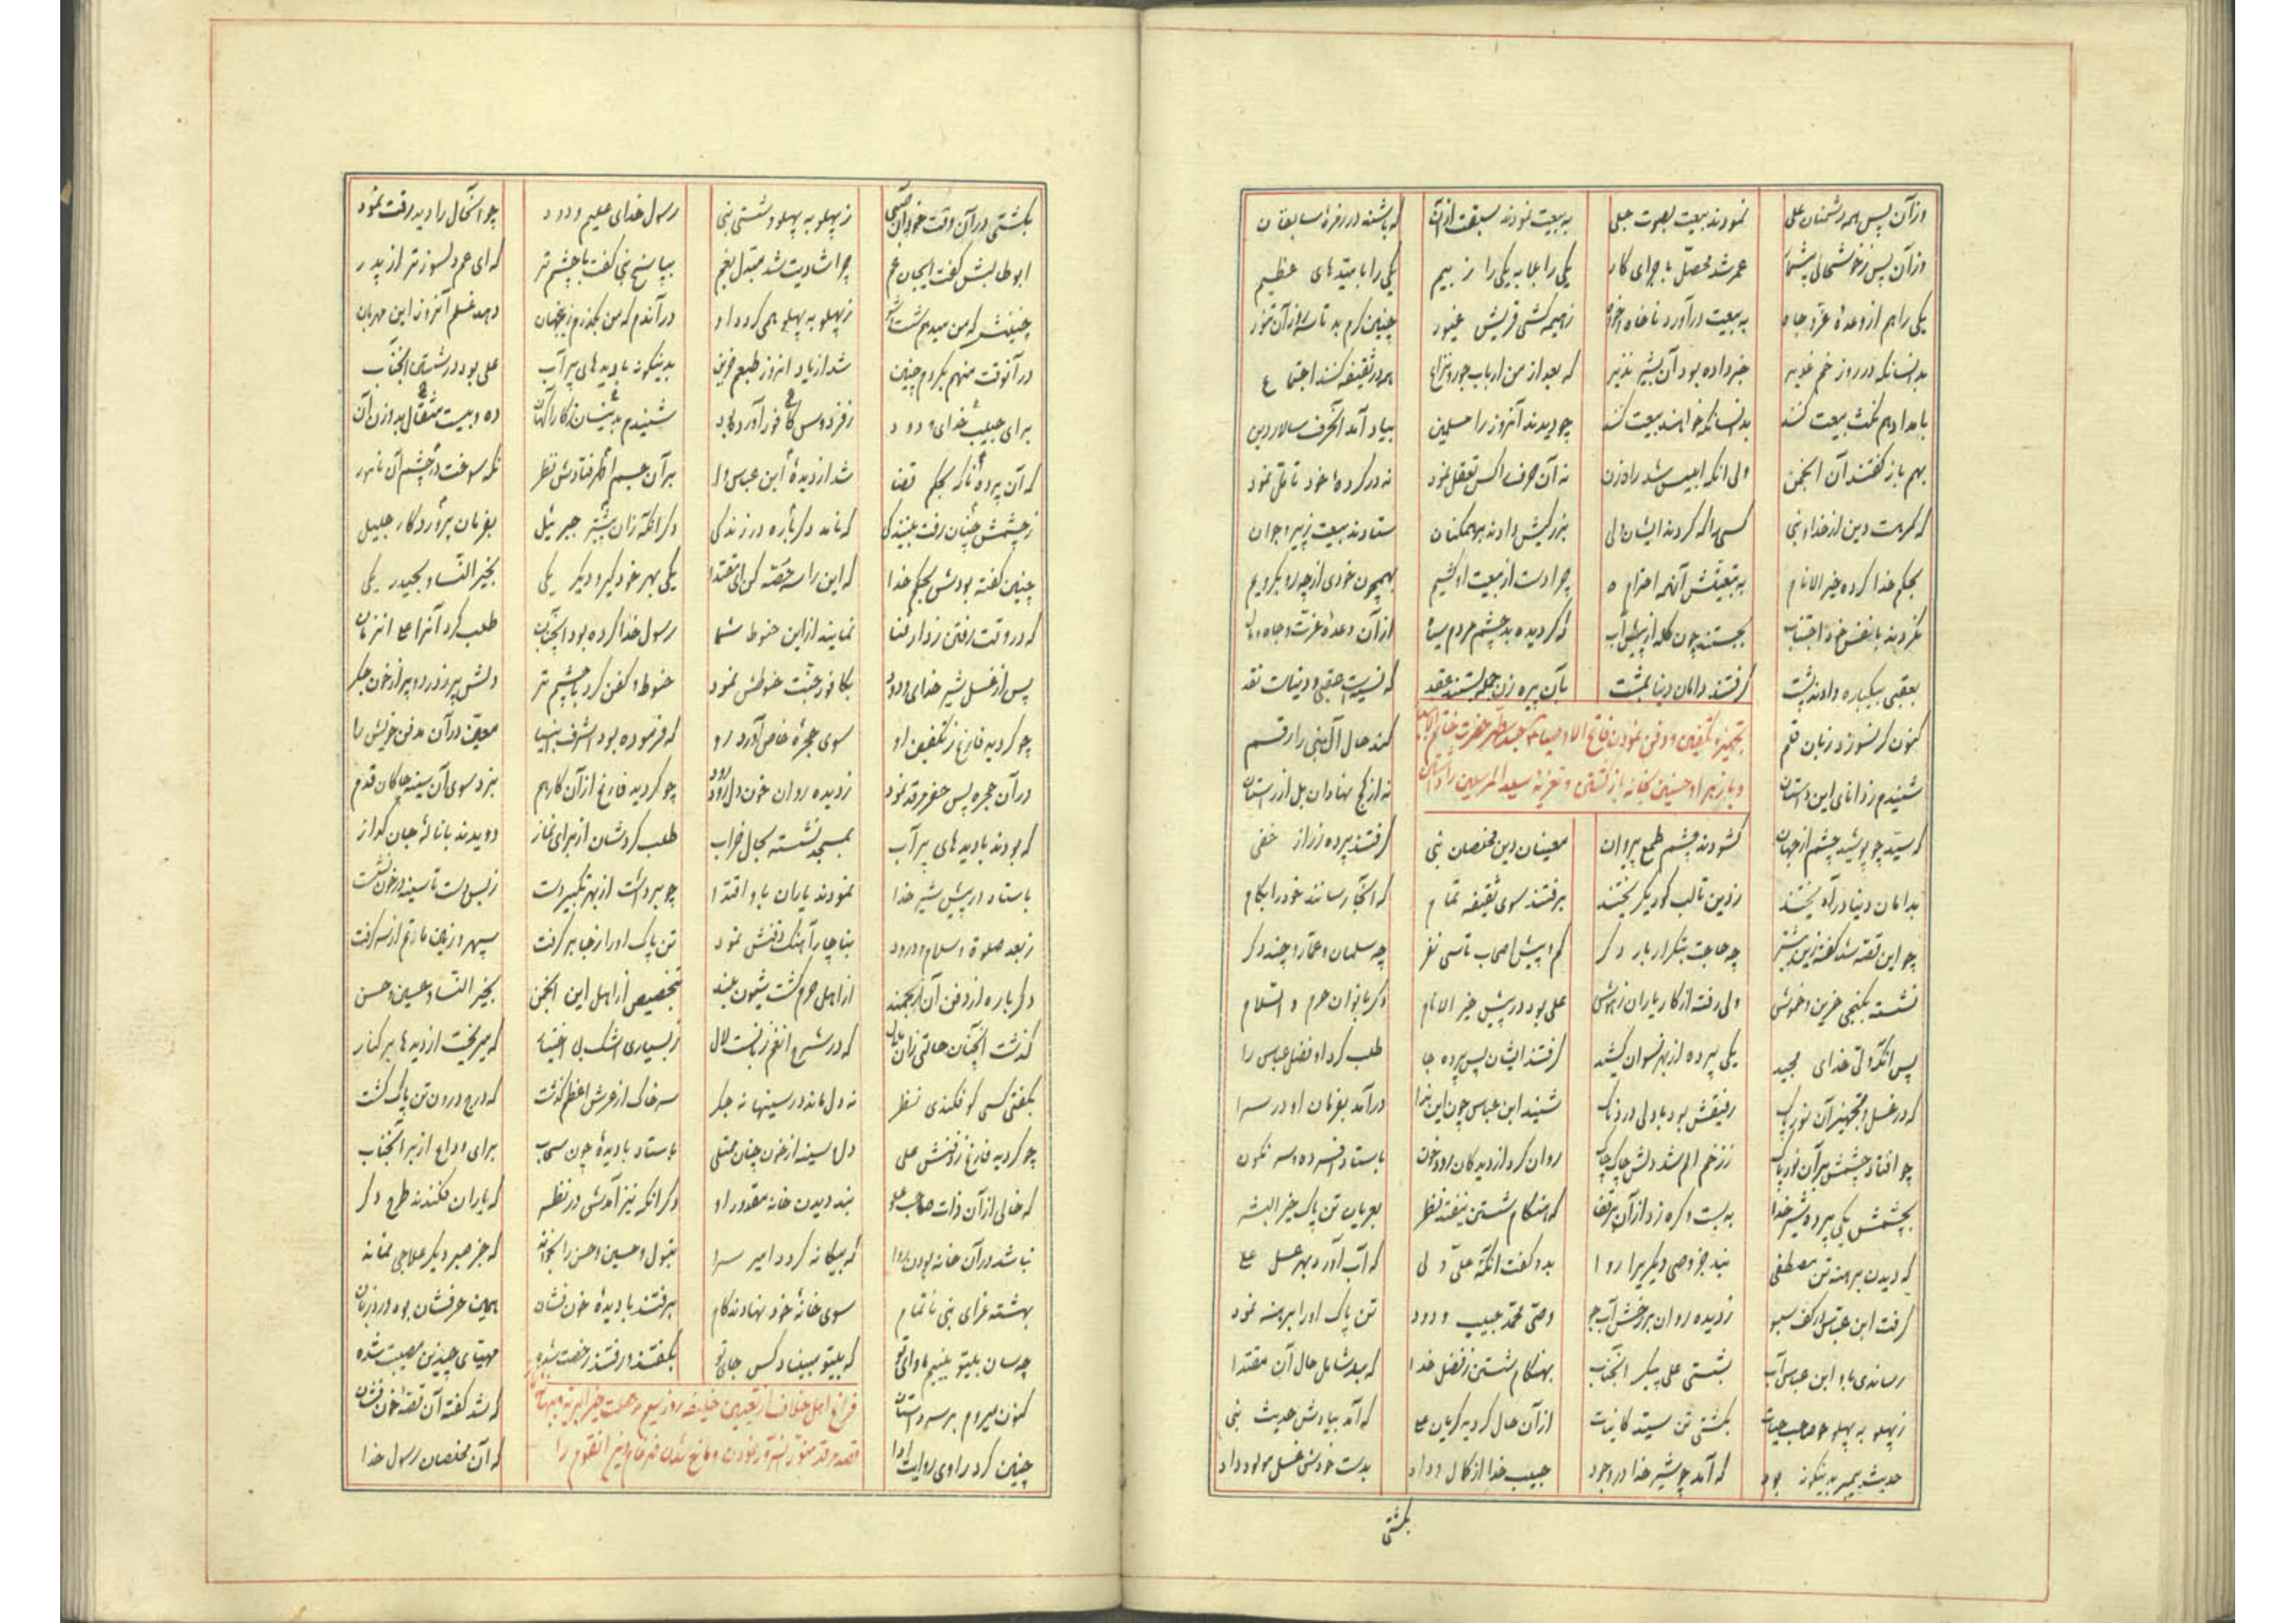 وزآن پس همه دشمنان علی نمودند بیعت بصوت جلی به بیعت نمودند سبقت ازآن که باشند در زمرهٔ سابقان
وزآن پس ز خوشحالی بیشمار عمر شد محصل باجرای کار یکی را عطا به یکی را ز بیم یکی را بامیدهای عظیم
یکی را هم از وعدهٔ عز و جاه به بیعت درآورد ناخواه خواه قریش غیور چنین گرم بد تا سه روز آن تنور
بدانسانکه در روز خم غدیر خبر داده بود آن بشیر نذیر که بعد از من ارباب جور و نزاع همه در ثقیفه کنند اجتماع
بامداد هم نکث بیعت کنند بدانسانکه خواهند بیعت کنند چو دیدند آنروز را مسلمین بیاد آمد آنحرف سالار دین
بهم باز گفتند آن انجمن ولی آنکه ابلیس شد راه زن نه آن حرف را کس تعقل نمود نه در کردهٔ خود تأمل نمود
که کردت دین از خدا و نبی کسی را که کردند ایشان ولی بزرگیش دادند بر همکنان ستادند بیعت ز پیر و جوان
بحکم خدا کرده خیر الانام به بیعتش آنهمه احترام چرا دست از بیعت او کشیم بهمچون خودی از چه رو بگرویم
نکردند با نفس خود اجتناب بجستند چون گله از پیش آب که گردیده بد چشم مردم سیاه از آن وعدهٔ عزت و جاه و مال
بعقبی بیکباره دادند پشت گرفتند دامان دنیا بمشت بآن پیره زن جمله بستند عقد که نسیه است عقبی و دنیاست نقد
تجهیز و تکفین و دفن نمودن فاتح الاوصیاء جسد مطهر حضرت خاتم الانبیا
کنون کر نسوزد زبان قلم کند حال آل نبی را رقم
و با زهرا و حسنین بخانه بازگشتن و تعزیهٔ سید المرسلین را داشتن
شنیدم ز دانای این داستان نه از کج نهادان بل از راستان
که سید چو پوشید چشم از جهان گشودند چشم طمع پیروان معینان دین مخلصان نبی گرفتند پرده ز راز خفی
بدامان دنیا درآویختند ز دین تالب گور بگریختند برفتند سوی ثقیفه تمام که آنجا رسانند خود را بکام
چو این قصه شد گفته زین بیشتر چه حاجت بتکرار بار دگر کم و بیش اصحاب تا سی نفر چه سلمان و عمار و چند دگر
نشسته بکنجی حزین و خموش ولی رفته از کار یاران ز هوش علی بود در پیش خیر الانام دگر بانوان حرم والسلام
پس آنگه ولی خدای مجید یکی پرده از بهر نسوان کشید گرفتند ایشان پس پرده جا طلب کرد او فضل عباس را
که در غسل و تجهیز آن نور پاک رفیقش بود با دل دردناک شنید ابن عباس چون این ندا درآمد بفرمان او در سرا
چو افتاد چشمش بر آن نور پاک ز زخم الم شد دلش چاک چاک روان کرد از دیدگان رود خون باستاد افسرده و سرنگون
بچشمش یکی پرده شیر خدا به بست و گره زد از آن بر قفا که هنگام شستن نیفتد نظر بعریان تن پاک خیر البشر
که دیدن برهنه تن مصطفی نبد جز وصی دیگری را روا بدو گفت آنگه علی ولی که آب آورد بهر غسل علی
گرفت ابن عباس در کف سبو ز دیده روان بر رخش آب جو وصی محمد حبیب ودود تن پاک او را برهنه نمود
رساندی باو ابن عباس آب بشستی علی پیکر آنجناب بهنگام شستن ز فضل خدا که بد شامل حال آن مقتدا
ز پهلو به پهلو چو صاحب حیات بگشتی تن سید کاینات از آن حال گردید گریان علی که آمد بیادش حدیث نبی
حدیث پیمبر بدینگونه بود که آمد چو شیر خدا در وجود حبیب خدا از کمال وداد بدست خودش غسل مولود داد
بگشتی
بگشتی در آن وقت ز پهلو به پهلو و شستی نبی رسول خدای علیم ودود چو آنحال را دید رقت نمود
ابوطالبش گفت ایجان عم چرا شادیت شد مبدل بغم بپاسخ نبی گفت با چشم تر که ای عم دلسوزتر از پدر
چنینش که من میدهم شست و شو ز پهلو به پهلو همی گردد او در آندم که من بگذرم زینجهان دهد غسلم آنروز این مهربان
در آنوقت منهم بگردم چنین شد از یاد آنروز طبعم حزین بدینگونه با دیدهای پر آب علی بود در شستن آنجناب
برای حبیب خدای ودود ز فردوس کافور آورده بود شنیدم بدینسان ز کارآگهان ده و بیست مثقال بد وزن آن
که آن پرده ناگه بحکم قضا شد از دیدهٔ ابن عباس وا بر آن جسم اطهر فتادش نظر نگه سوخت در چشم آن نامور
ز چشمش چنان رفت بینندگی که نامد دگرباره در زندگی دگر آنکه زان پیشتر جبرئیل بفرمان پروردگار جلیل
چنین گفته بودش بحکم خدا که این را سه حصه کن ای مقتدا یکی بهر خود گیر و دیگر یکی بخیر النسا و بحیدر یکی
که در وقت رفتن ز دار فنا نمایند از این حنوط شما رسول خدا کرده بود آنچنان طلب کرد آنرا علی آنزمان
پس از غسل شیر خدای ودود بکافور جنت حنوطش نمود حنوط و کفن کرد با چشم تر دلش پر ز درد و پر از خون جگر
چو گردید فارغ ز تکفین او سوی حجرهٔ خاص آورد رو که فرموده بود اشرف انبیا معین در آن مدفن خویش را
در آن حجره پس حفر مرقد نمود ز دیده روان خون دل رود رود چو گردید فارغ از آن کار هم بزد سوی آن سینه چاکان قدم
که بودند با دیدهای پر آب بمسجد نشسته بحال خراب طلب کردشان از برای نماز دویدند با نالهٔ جان گداز
باستاد در پیش شیر خدا نمودند یاران باو اقتدا چو برداشت از بهر تکبیر دست ز بس دست تا سینه در خون نشست
ز بعد صلوة و سلام و درود بناچار آهنگ دفنش نمود تن پاک او را ز جا برگرفت سپهر و زمین ماتم از سر گرفت
دگر باره از دفن آن ارجمند از اهل حرم گشت شیون بلند بتخصیص از اهل این انجمن بخیر النسا و حسین و حسن
گذشت آنچنان حالتی زان ملال که در شرح آنغم زبانست لال ز بسیاری اشک بی اختیار که میریخت از دیدها بر کنار
بگفتی کسی کو فکندی نظر نه دل مانده در سینها نه جگر سر خاک از عرش اعظم گذشت که درج درون تن پاک گشت
چو گردید فارغ ز دفنش علی دل و سینه از خون چنان ممتلی باستاد با دیدهٔ چون سحاب برای وداع از بر آنجناب
که خالی از آن ذات صاحب علو نبد دیدن خانه مقدور او دگر آنکه نیز آمدش در نظر که یاران فکندند طرح دگر
نباشد در آن خانه بودن روا که بیگانه گردد امیر سرا بتول و حسین و حسن را بخواند که جز صبر دیگر علاجی نماند
بهشته عزای نبی ناتمام سوی خانهٔ خود نهادند گام برفتند با دیدهٔ خون فشان همین حرفشان بود ورد زبان
چه سان بیتو بینیم ماوای تو که بیتو مبیناد کس جای تو بگفتند و رفتند رخصت شده مهیای چندین مصیبت شده
کنون میروم بر سر داستان که شد گفته آن قصهٔ خون فشان
فراغ اهل خلاف از تعیین خلیفه روز سیم رحلت خیر البریه
چنین کرد راوی روایت ادا که آن مخلصان رسول خدا